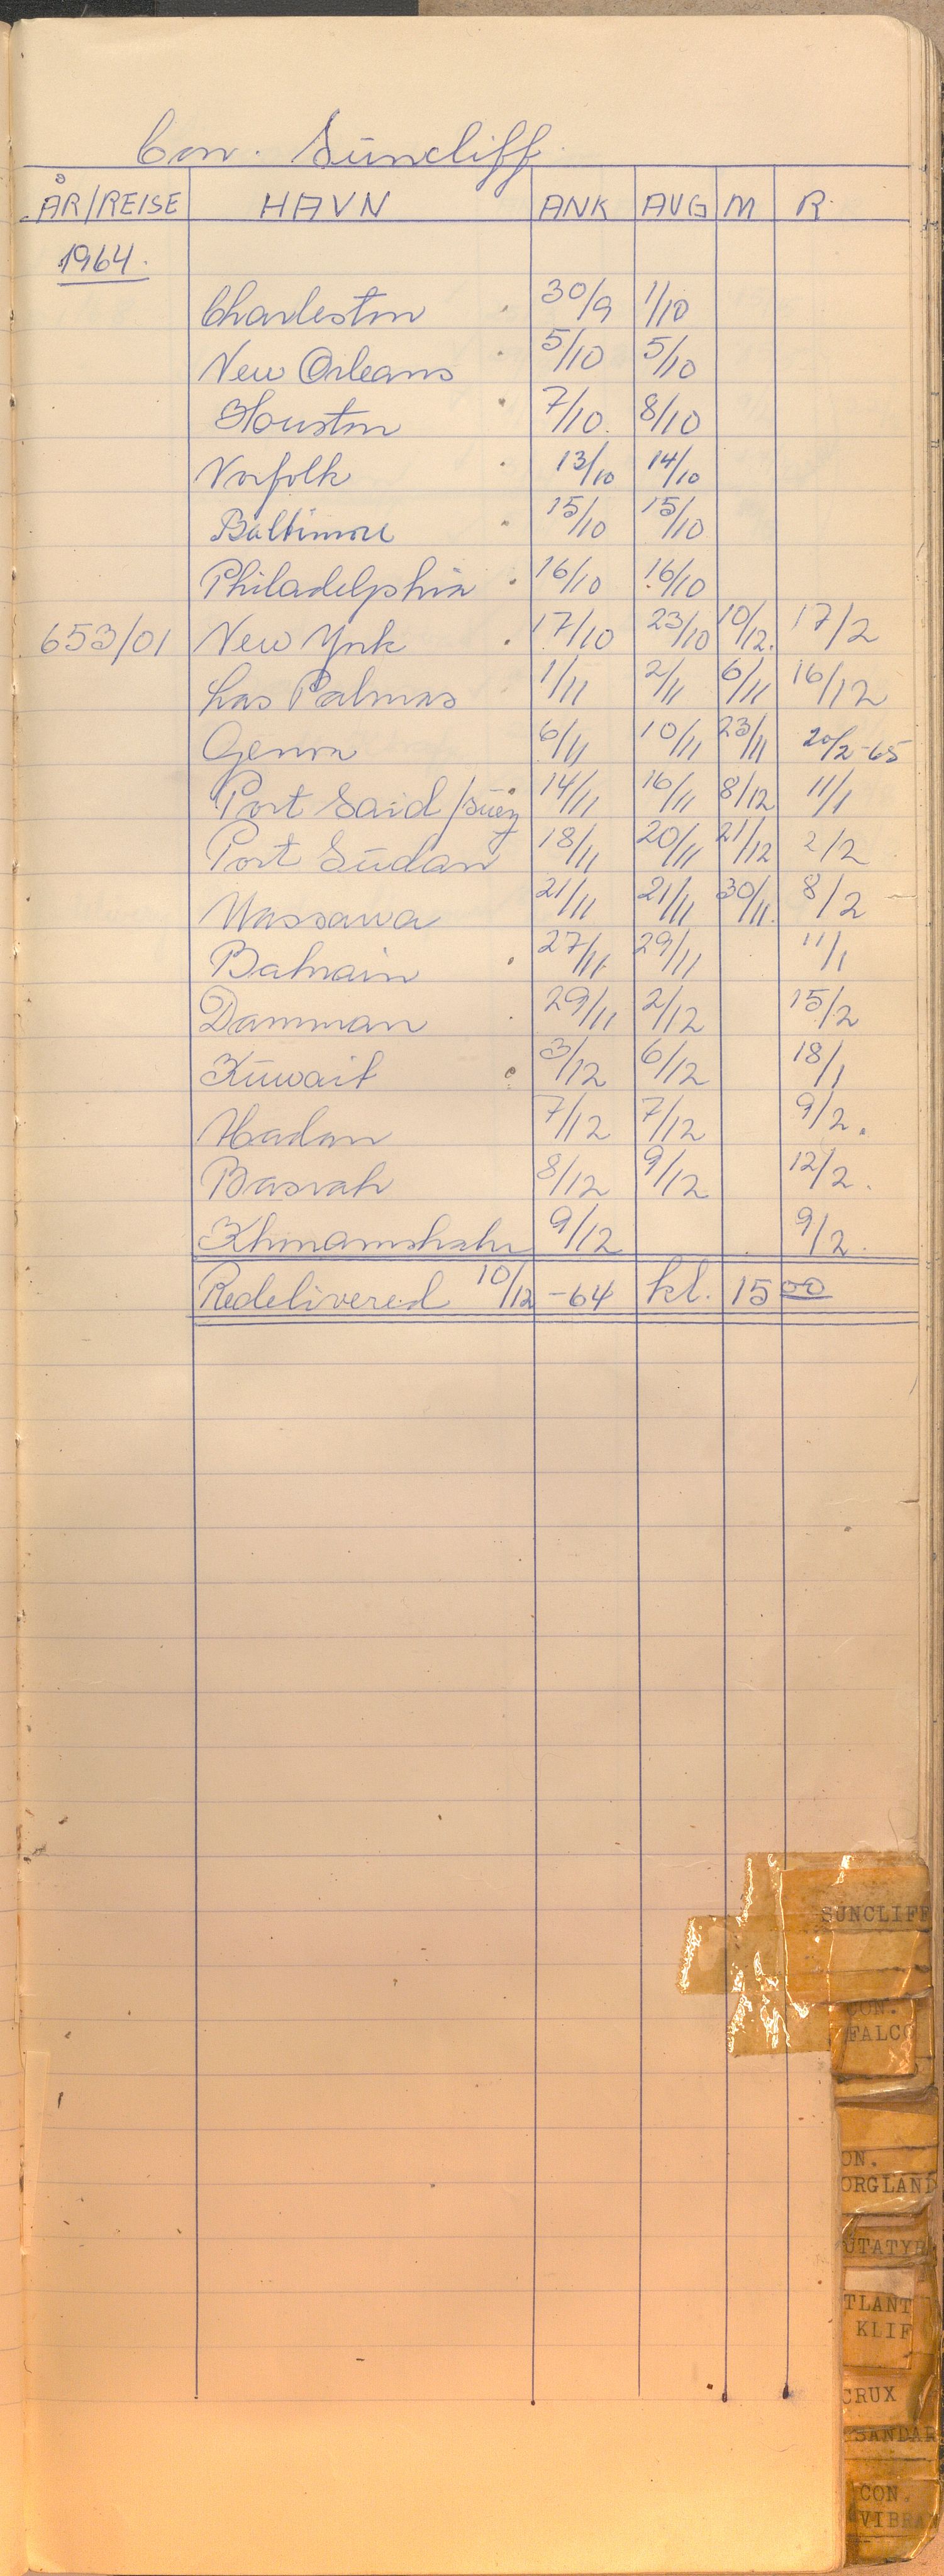 Con. Suncliff.
ÅR/REISE HAVN ANK AVG M R.
1964.
Charleston 30/9 1/10
New Orleans 5/10 5/10
Houston 7/10. 8/10
Norfolk 13/10 14/10
Baltimore 15/10 15/10
Philadelphia 16/10 16/10
653/01 New York 17/10 23/10 10/12. 17/2
Las Palmas 1/11 2/11 6/11 16/12
Genoa 6/11 10/11 23/11 20/2-65
Port Said/Suez 14/11 16/11 8/12 11/1
Port Sudan 18/11 20/11 21/12 2/2
Massawa 21/11 21/11 30/11. 8/2
Bahrain 27/11 29/11 11/1
Damman 29/11 2/12 15/2
Kuwait 3/12 6/12 18/1
Abadan 7/12 7/12 9/2.
Basrah 8/12 9/12 12/2.
Khoramshahr 9/12 9/2.
Redelivered 10/12 -64 kl. 15 00
SUNCLIFF
CON.
FALCO
ON.
ORGLAND
UTATYR
TLANT
KLIF
CRUX
SANDAR
CON.
VIBRA